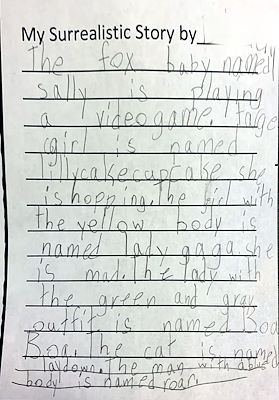 My Surrealistic Story by
The fox baby named
sally is playing
a videogame.
girl is named
lillycakecupcake she
is hopping. The girl with
the yellow body is
named lady gaga. she
is mad. The lady with
the green and gray
outfit is named Boa
Boa. The cat is named
laydown. The man with a blue
body is named roar.